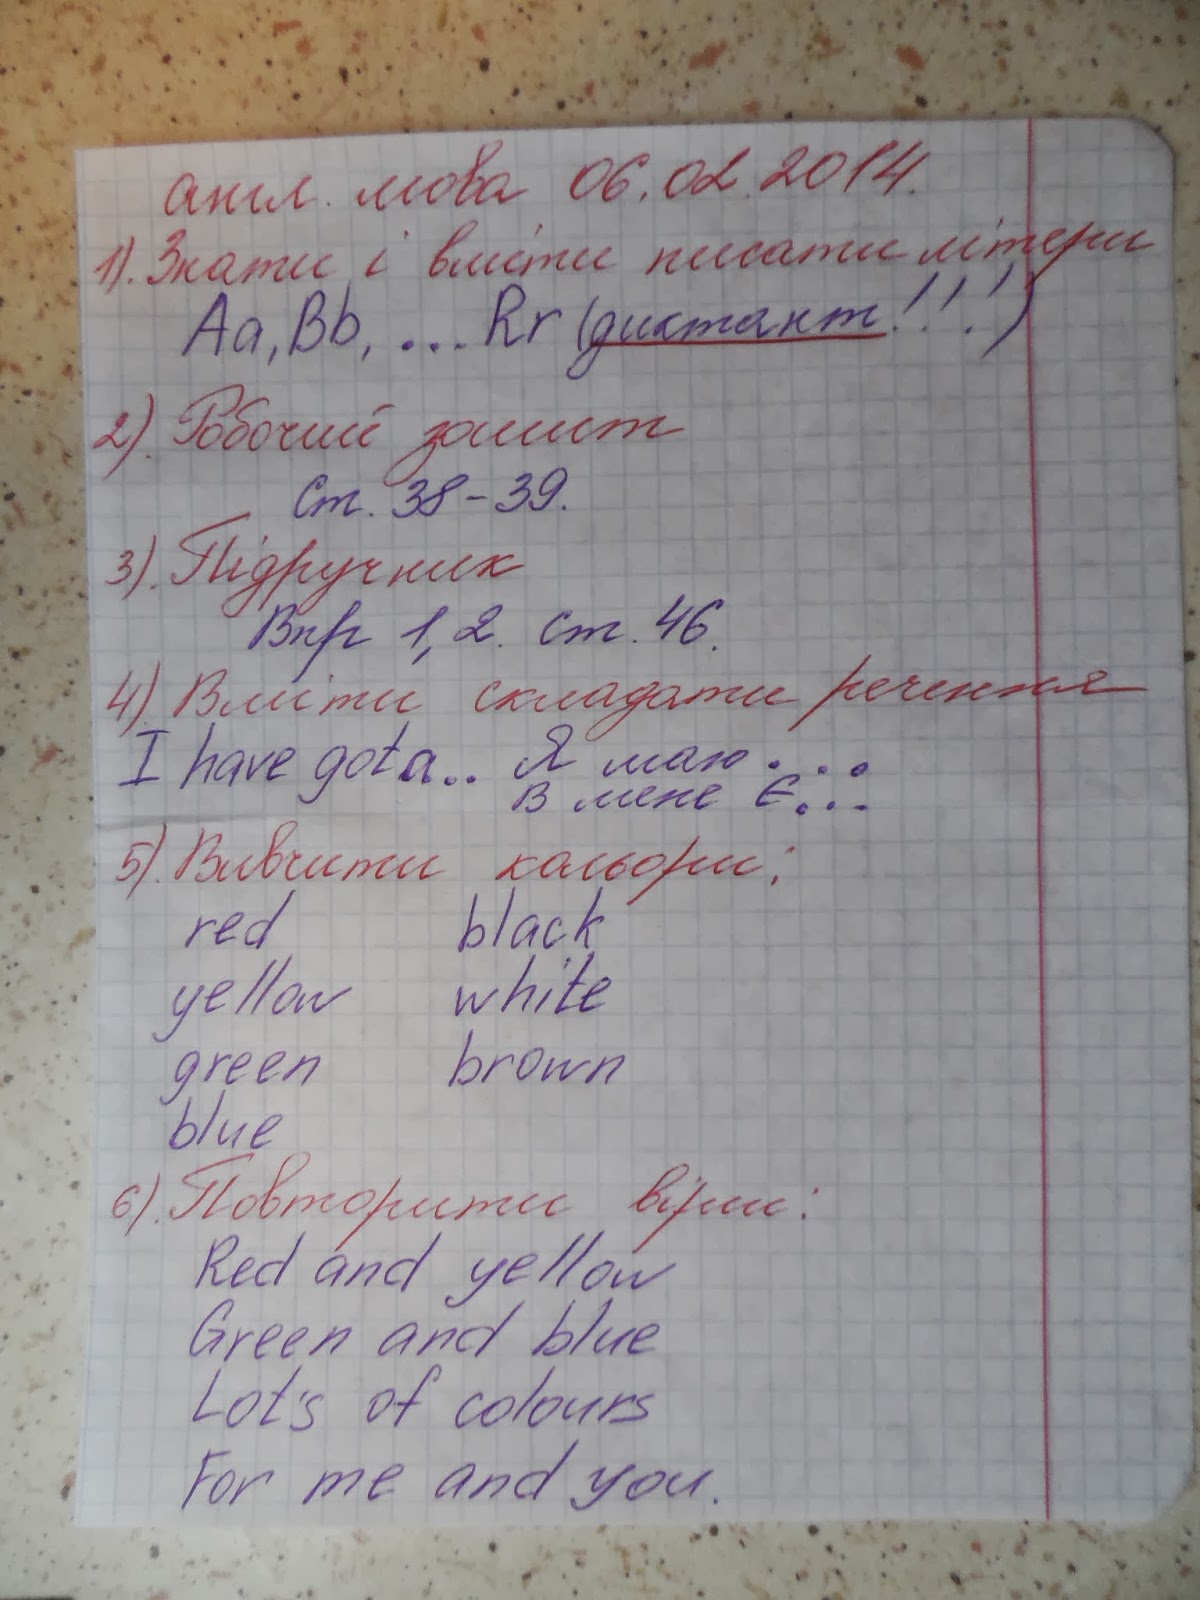 англ. мова 06.02.2014.
1). Знати і вміти писати літери
Aa, Bb, ... Rr (диктант!!!)
2). Робочий зошит
Ст. 38-39.
3). Підручник
Впр 1, 2. ст. 46.
4) Вміти складати речення
I have got a.. Я маю ....
В мене є...
5). Вивчити кольори:
red black
yellow white
green brown
blue
6). Повторити вірш:
Red and yellow
Green and blue
Lot's of colours
For me and you.